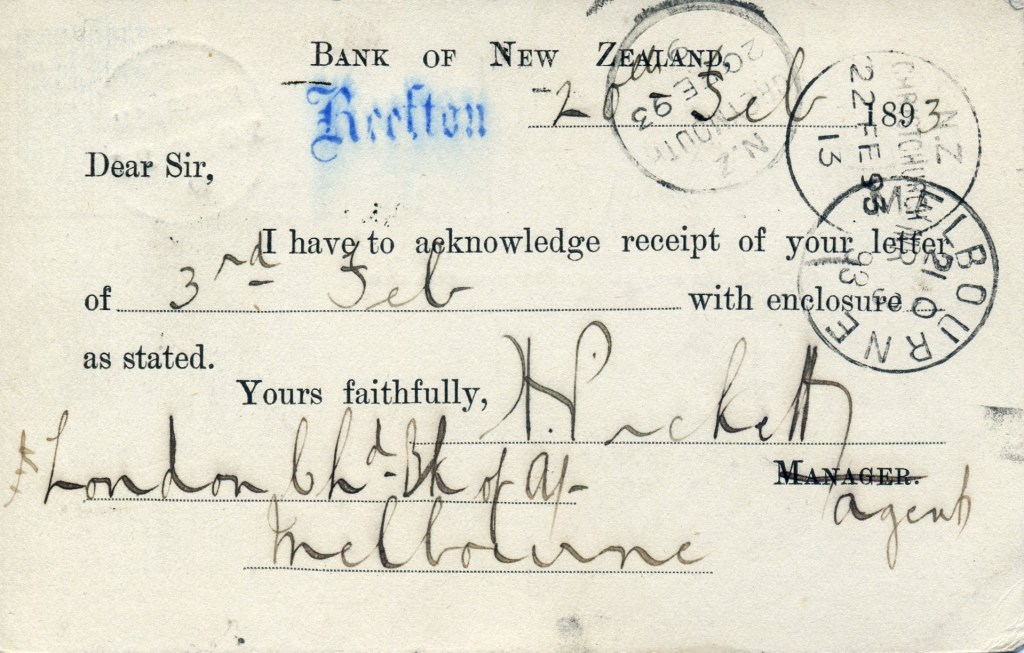 BANK OF NEW ZEALAND,
Reefton
20th Feb 1893
Dear Sir,
I have to acknowledge receipt of your letter
of 3rd Feb with enclosure
as stated.
Yours faithfully,
N. Pickett
MANAGER.
agent
London Chd. Bk of A/-
Melbourne
GREYMOUTH N.Z
20 FE 93
N.Z
CHRISTCHURCH
22 FE 93
13
MELBOURNE
93